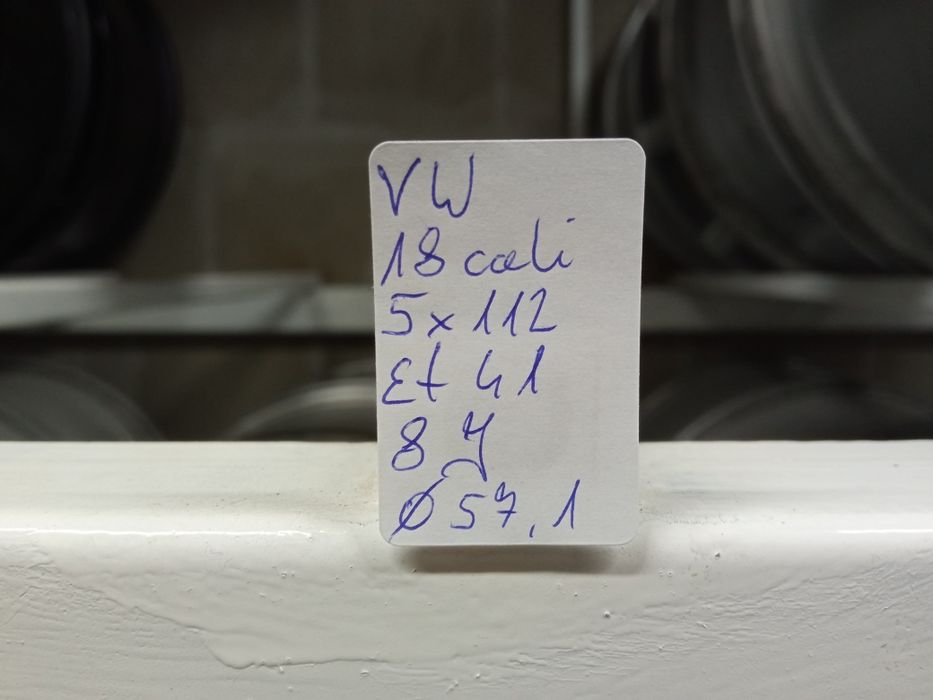 VW
18 cali
5x112
Et 41
8 J
Ø 57,1